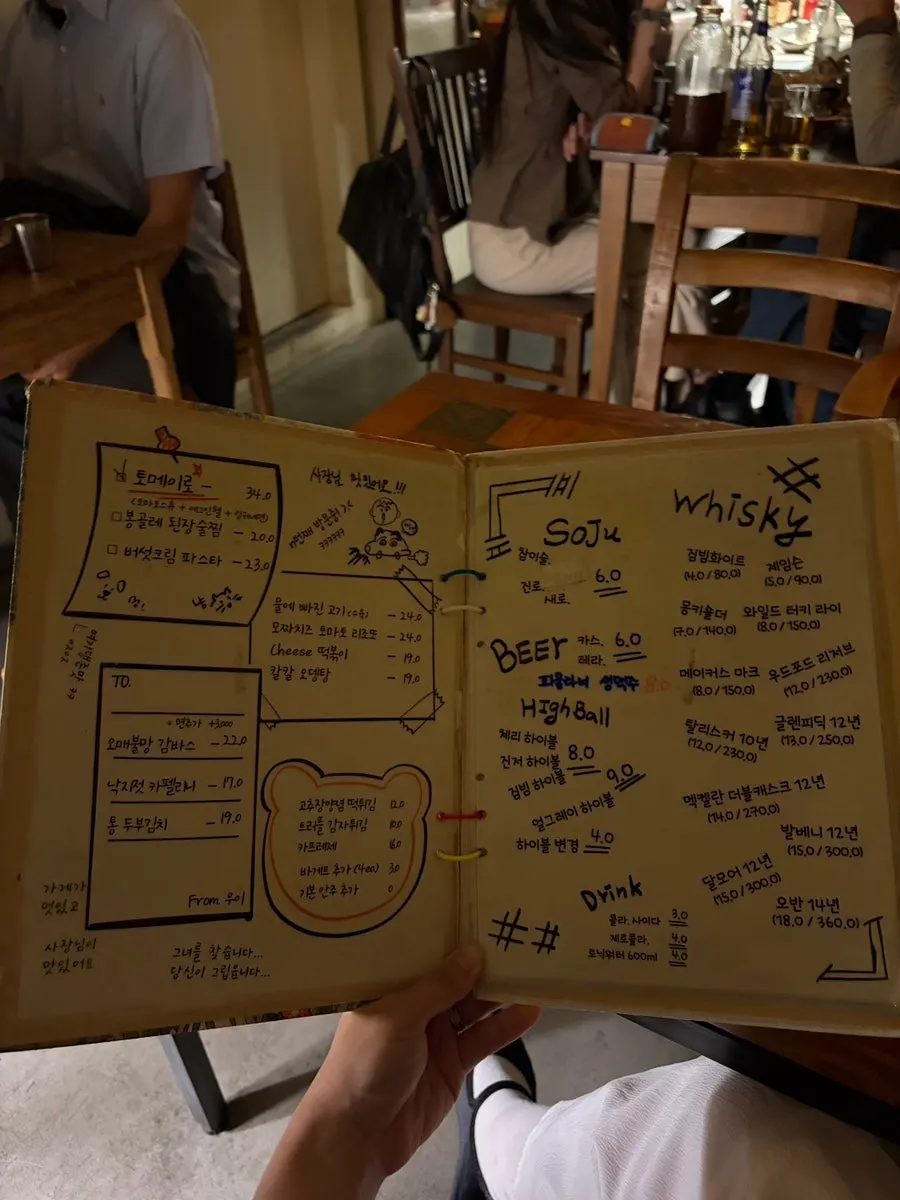 토메이로 - 34.0
봉골레 된장술찜 - 20.0
버섯크림 파스타 - 23.0
사장님 맛있어요!!!
물에 빠진 고기(수육) - 24.0
모짜치즈 토마토 리조또 - 24.0
Cheese 떡볶이 - 19.0
칼칼 오뎅탕 - 19.0
TO.
면추가 +3,000
오매불망 감바스 - 22.0
낙지젓 카펠리니 - 17.0
통 두부김치 - 19.0
From 우이
고추장양념 떡튀김 12.0
트러플 감자튀김 10.0
카프레제 16.0
바게트 추가 (4ea) 3.0
기본안주 추가 0
가게가
멋있고
사장님이
맛있어요
그녀를 찾습니다...
당신이 그립습니다...
SOJU
참이슬.
진로. 6.0
새로.
BEER 카스. 6.0
테라.
생맥주 8.0
HighBall
체리 하이볼
진저 하이볼 8.0
짐빔 하이볼 9.0
얼그레이 하이볼
하이볼 변경 4.0
Drink
콜라. 사이다 3.0
제로콜라. 4.0
토닉워터 600ml 4.0
Whisky
짐빔화이트
(4.0 / 80.0)
제임슨
(5.0 / 90.0)
몽키숄더
(7.0 / 140.0)
와일드 터키 라이
(8.0 / 150.0)
메이커스 마크
(8.0 / 150.0)
우드포드 리저브
(12.0 / 230.0)
탈리스커 10년
(12.0 / 230.0)
글렌피딕 12년
(13.0 / 250.0)
멕켈란 더블캐스크 12년
(14.0 / 270.0)
발베니 12년
(15.0 / 300.0)
달모어 12년
(15.0 / 300.0)
오반 14년
(18.0 / 360.0)